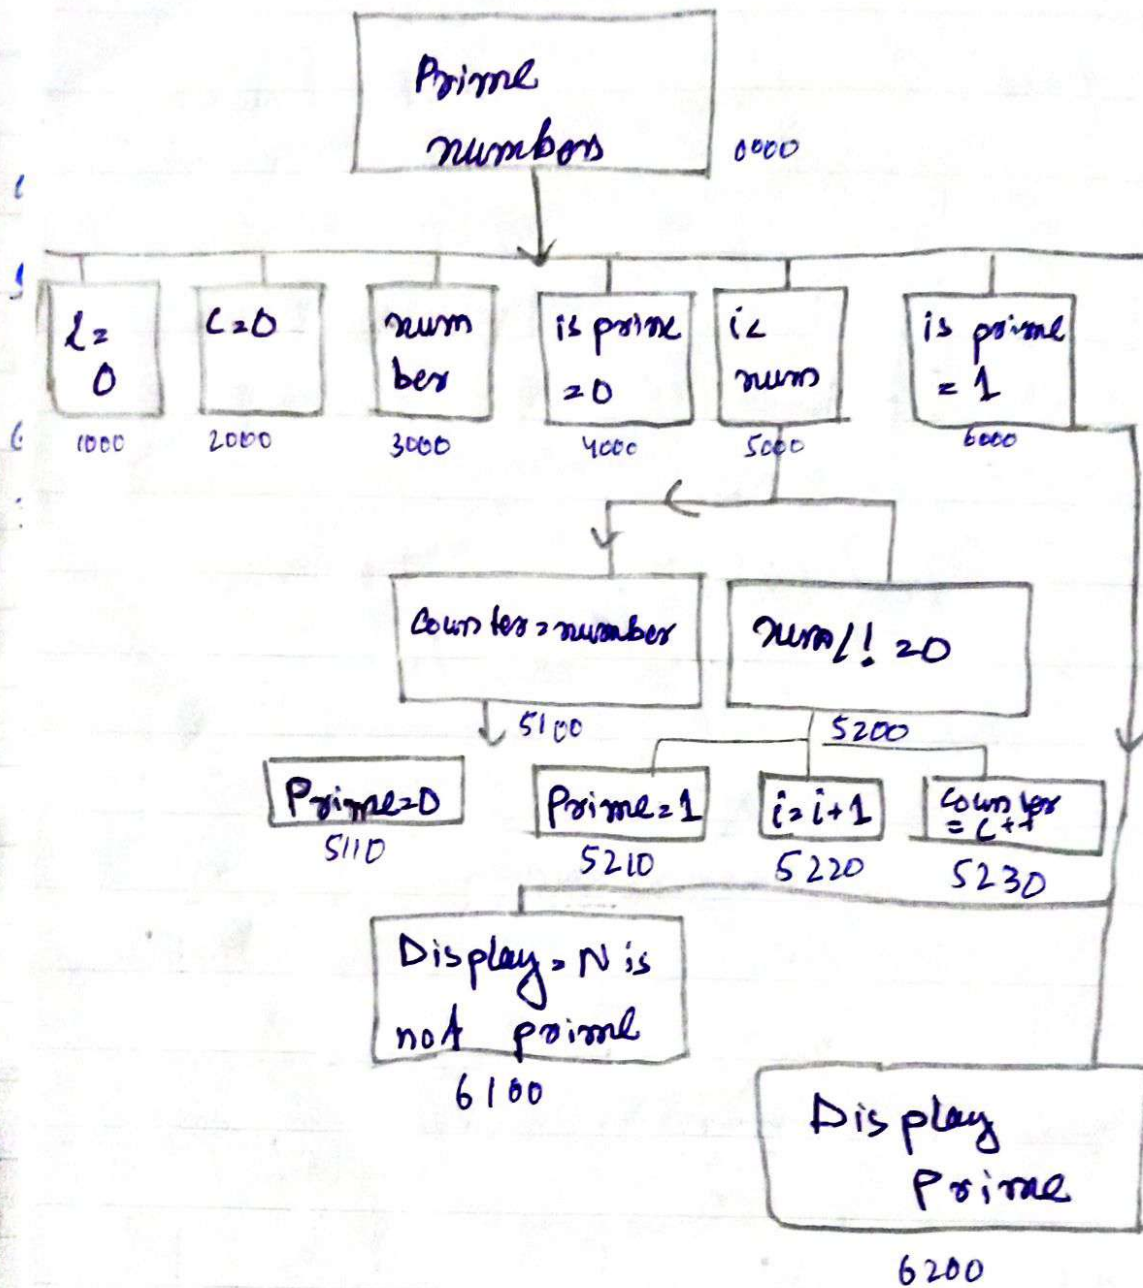 Prime
numbers
0000
i=
0
1000
C=0
2000
num
ber
3000
is prime
=0
4000
i<
num
5000
is prime
= 1
6000
Counter=number
5100
num/! =0
5200
Prime=0
5110
Prime=1
5210
i=i+1
5220
Counter
= C++
5230
Display=N is
not prime
6100
Display
Prime
6200